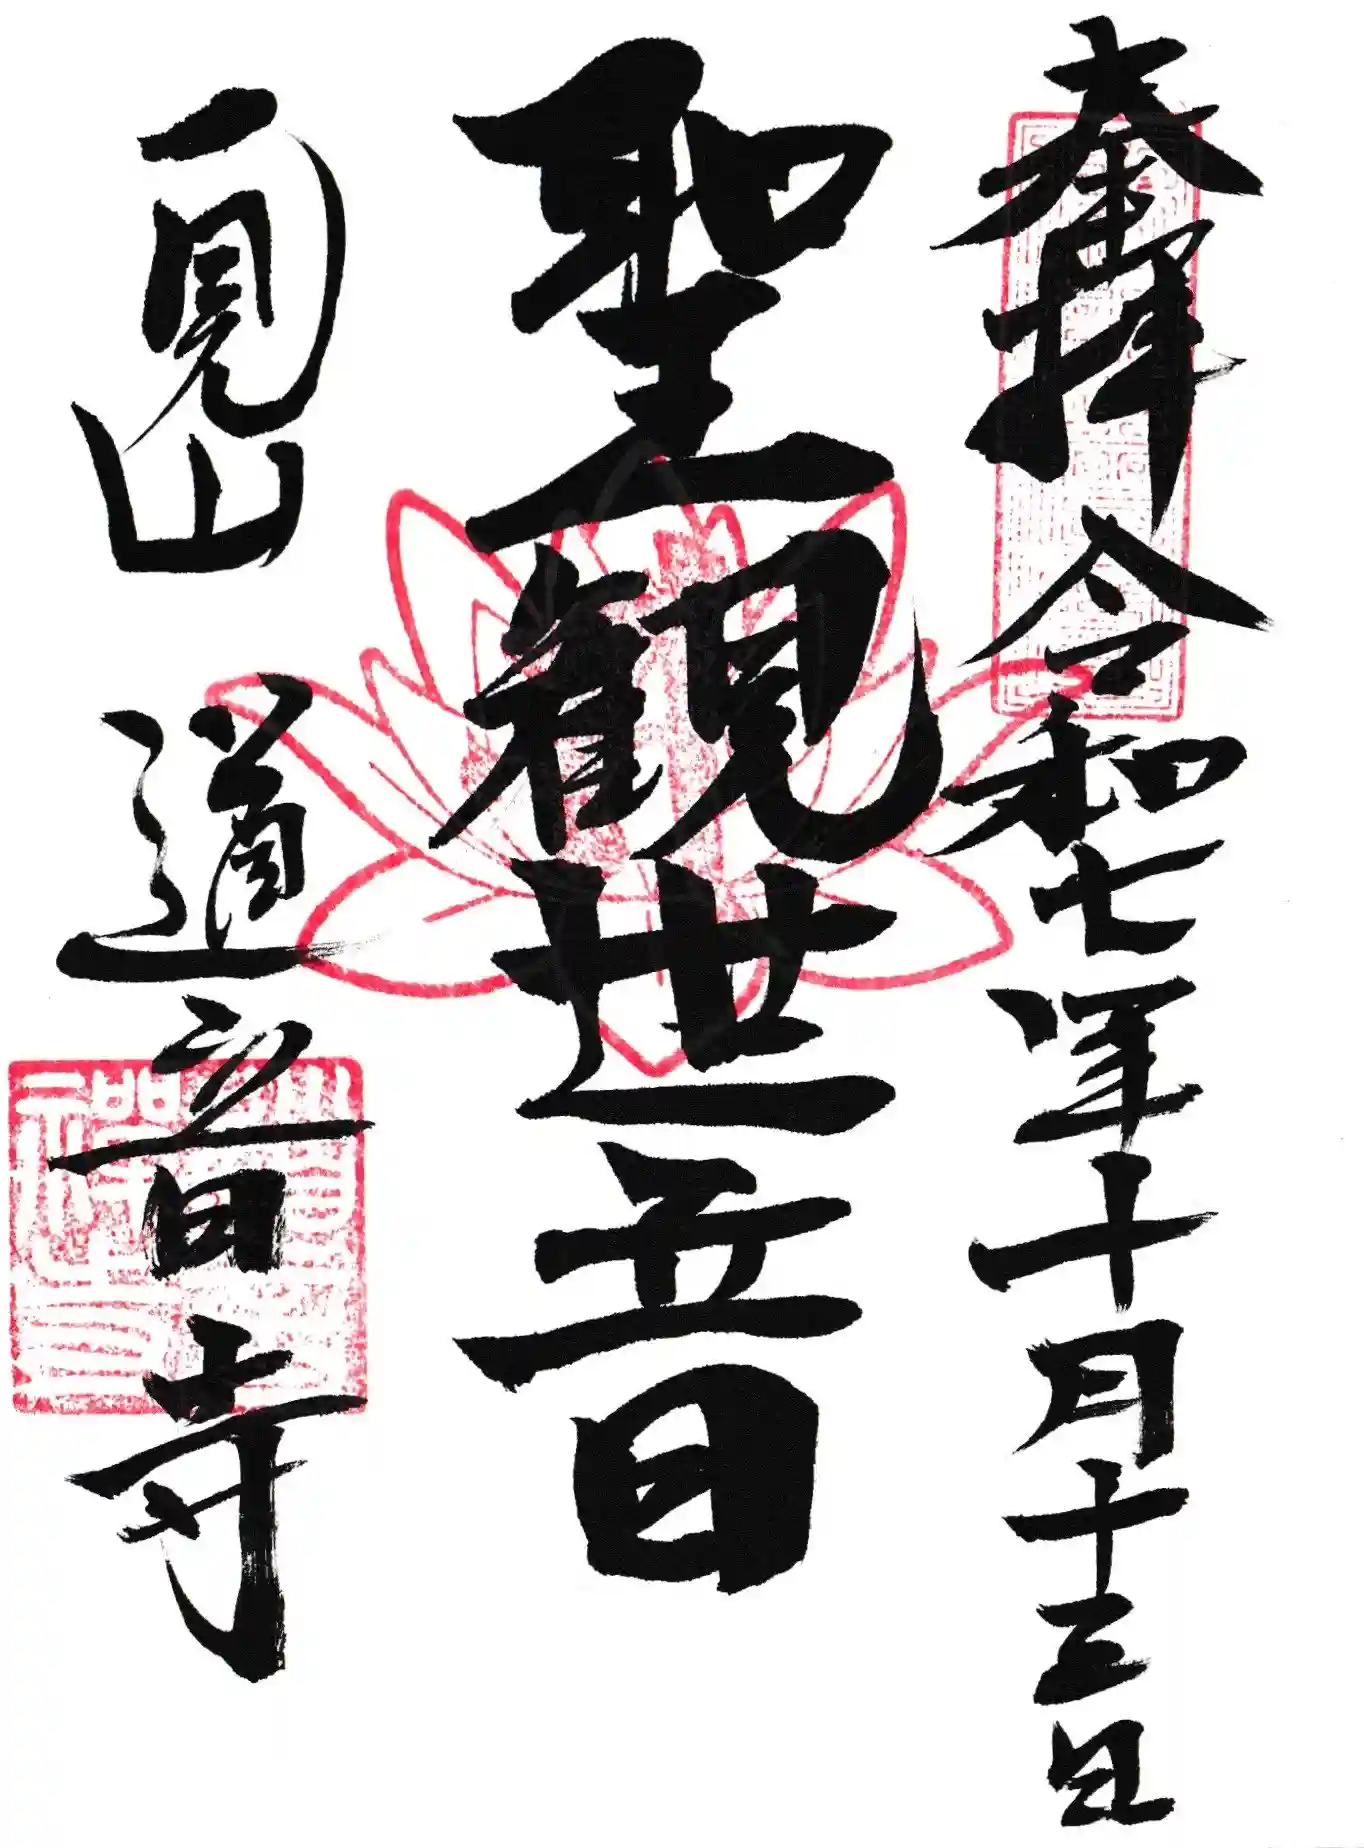 奉拝 令和七年十月十三日
聖観世音
山 道音寺